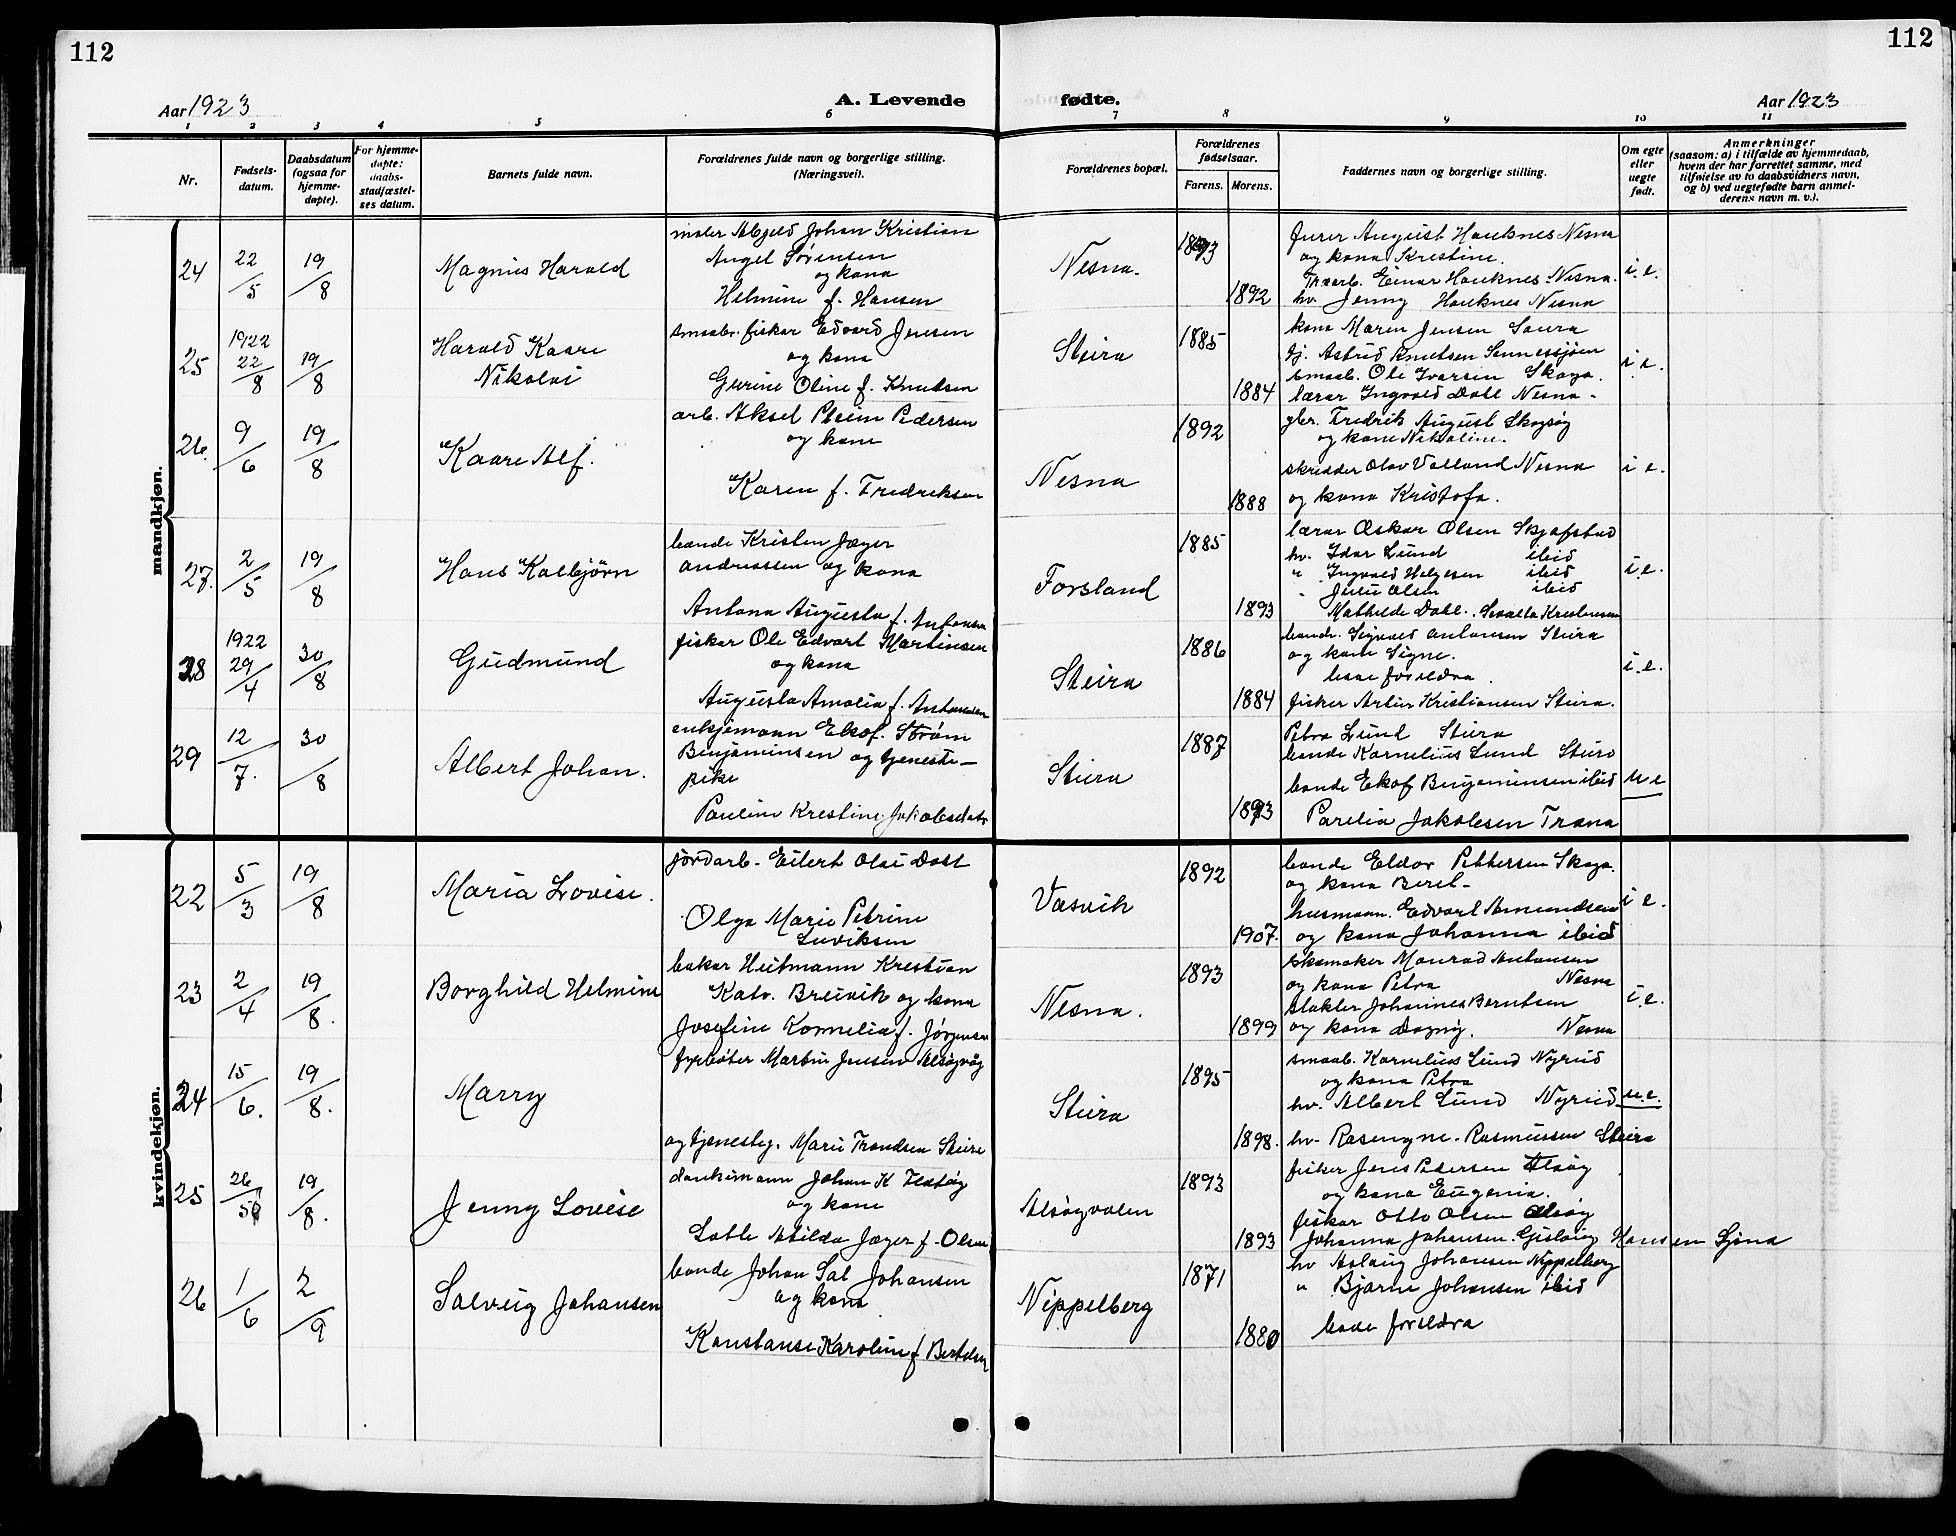 112
112
Aar 1923
A. Levende fødte.
Aar 1923
1 2 3 4 5 6 7 8 9 10 11
Nr.
Fødsels-
datum.
Daabsdatum
(ogsaa for
hjemme-
døpte).
For hjemme-
døpte:
daabs-
stadfæstel-
ses datum.
Barnets fulde navn.
Forældrenes fulde navn og borgerlige stilling.
(Næringsvei).
Forældrenes bopæl.
Forældrenes
fødselsaar.
Farens. Morens.
Faddernes navn og borgerlige stilling.
Om egte
eller
uegte
født.
Anmerkninger
(saasom: a) i tilfælde av hjemmedaab,
hvem der har forrettet samme, med
tilføielse av to daabsvidners navn,
og b) ved uegtefødte barn anmel-
derens navn m. v.).
mandkjøn.
24
22/5
19/8
Magnus Harald
maler Johan Kristian
Angel Sørensen
og kona
Helmine f. Hansen
Nesna.
1893
1892
August Hauknes Nesna
og kona Kristine.
Einar Hauknes Nesna.
hv. Jenny Hauknes Nesna
i.e.
25
1922
22/8
19/8
Harald Kaare
Nikolai
smaabr. fisker Edvard Jensen
og kona
Gurine Oline f. Knudsen
Steira
1885
1884
kona Maren Jensen Saura
tj. Astrid Knutsen Sannessjøen
smaab. Ole Ivarsen Skoga.
lærar Ingvald Dall Nesna.
i.e.
26.
9/6
19/8
Kaare Alf.
arb. Aksel Pedersen
og kone
Karen f. Fredriksen
Nesna
1892
1888
gbr. Fredrik August Skogsøy
og kone Nikoline.
skredder Olav Valland Nesna
og kona Kristofa.
i e.
27.
2/5
19/8
Hans Kolbjørn
bonde Kristen Jæger
Andreassen og kona
Antona Augusta f. Antonsen
Forsland
1885
1893
lærar Oskar Olsen
hv. Idar Lund ibid
" Ingvald Helgesen ibid
" Olsen ibid
Mathilde Dall.
i.e.
28
1922
29/4
30/8
Gudmund
fisker Ole Edvart Martinsen
og kona
Augusta Amalia f. Antonsen
Steira
1886
1884
bonde. Sigvald Antonsen Steira
og kone Signe.
foreldra.
fisker Artur Kristiansen Steira.
i.e.
29
12/7.
30/8
Albert Johan.
enkjemann Ekof. Strøm
Benjaminsen og tjeneste-
pike
Pauline Krestine Jakobsdatr
Steira
1887
1893
Petra Lund Steira
bonde Kornelius Lund Steira
bonde Ekof Benjaminsen ibid
Parelia Jakobsen Træna
u e
kvindekjøn.
22
5/3
19/8
Maria Lovise.
jordarb. Eilert Olai Dall
Olga Marie Petrine
Luviksen
Vasvik
1892
1907.
bonde Eldor Pettersen Skoga.
og kona Beret-
husmann. Edvart Amundsen
og kona Johanna ibid
i e.
23
2/4
19/8.
Borghild Helmine
baker Heitmann Krestian
Kato. Breivik og kona
Josefine Kornelia f. Jørgensen
Nesna.
1893
1899
skomaker Monrad Antonsen
og kona Petra Nesna
slakter Johannes Berntsen
og kona Dagny. Nesna
i.e.
24
15/6.
19/8.
Marry
fyrbøter Martin Jensen Alsøyvåg
og tjenestg. Marie Trondsen Steira
Steira
1895
1898.
smaab. Kornelius Lund Nyrud
og kona Petra
hv. Albert Lund Nyrud
hv. Rasmussen Steira
u.e.
25
26/5
19/8.
Jenny Lovise
Johan K Flatøy
og kone
Lotte Milda Jæger f. Olsen
Alsøyvalen
1893
1893
fisker Jens Pedersen Alsøy
og kona Eugenia.
fisker Otto Olsen Alsøy
Johanna Johansen. Gisløig Hansen Sjona
26
1/6
2/9
Solveig Johansen
bonde Johan Sal Johansen
og kona
Konstanse Karoline f Bertelsen
Nippelberg
1871
1880
hv Aslaug Johansen Nippelberg
" Bjarne Johansen ibid
bode foreldra